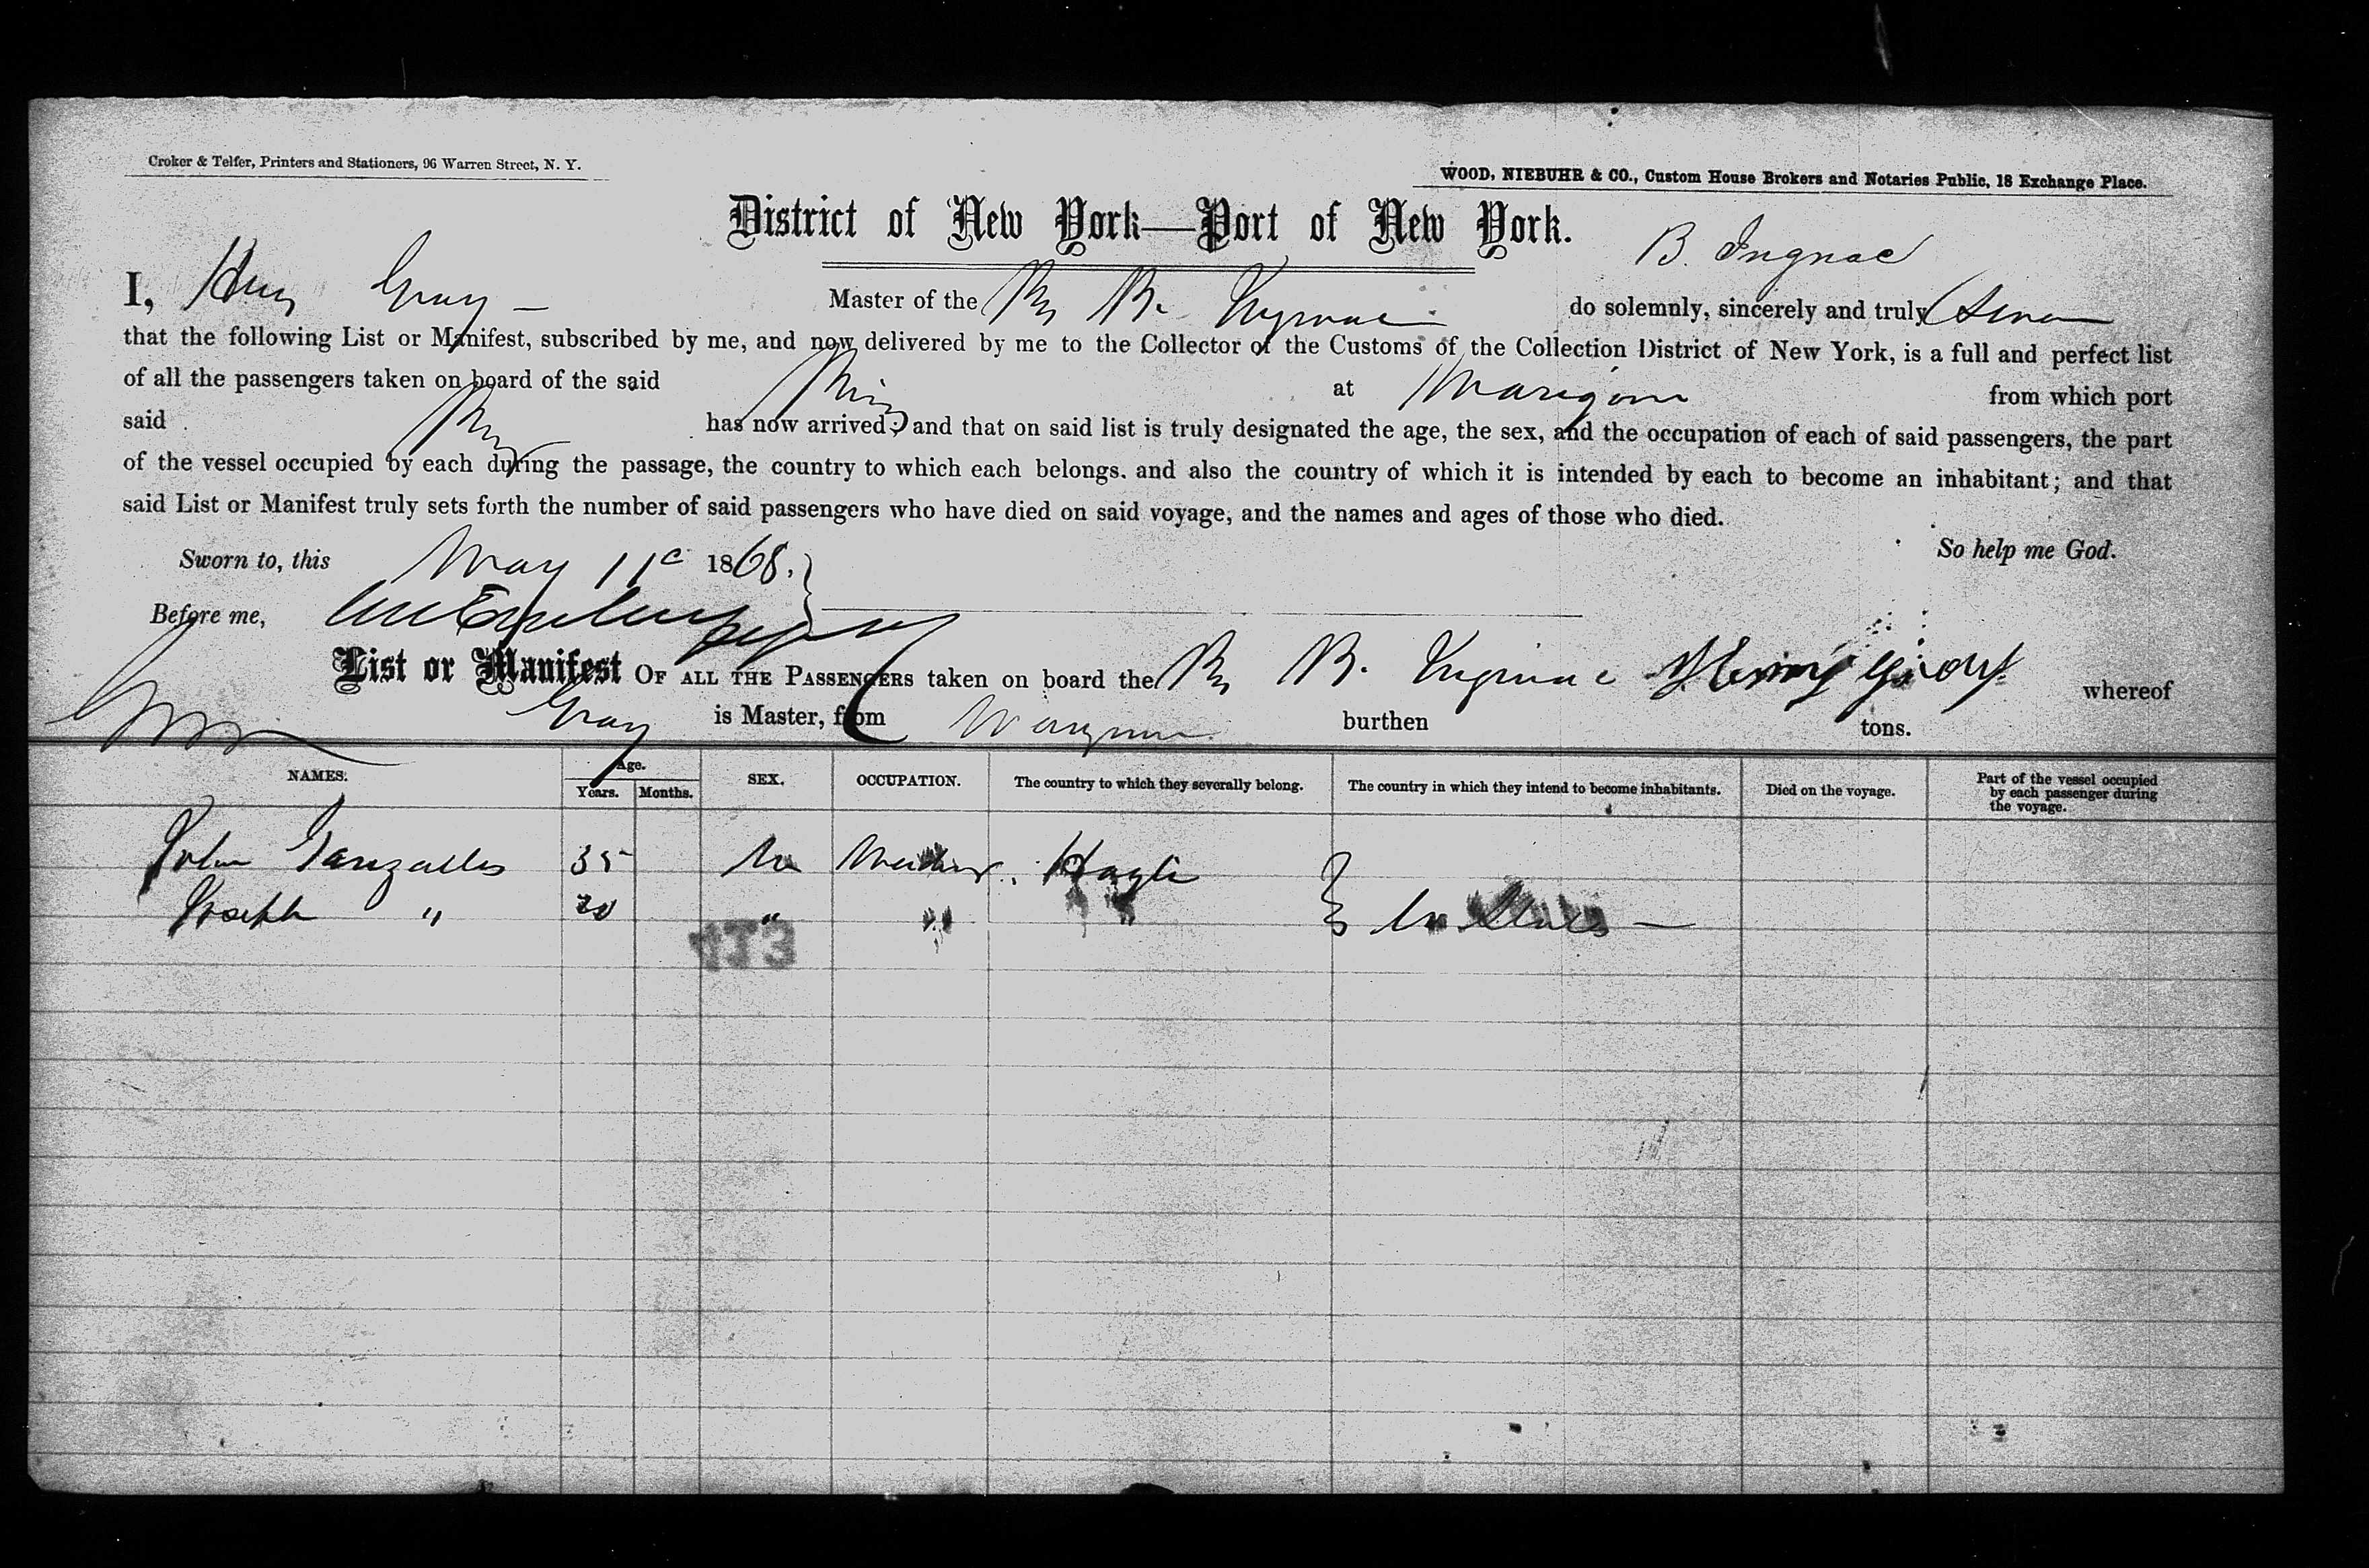 Croker & Telfer, Printers and Stationers, 96 Warren Street, N. Y.
WOOD, NIEBUHR & CO., Custom House Brokers and Notaries Public, 18 Exchange Place.
District of New York—Port of New York.
B. Ingnac
I, Henry Gray — Master of the Brig B. Ingnac do solemnly, sincerely and truly swear
that the following List or Manifest, subscribed by me, and now delivered by me to the Collector of the Customs of the Collection District of New York, is a full and perfect list
of all the passengers taken on board of the said Brig at from which port
said Brig has now arrived; and that on said list is truly designated the age, the sex, and the occupation of each of said passengers, the part
of the vessel occupied by each during the passage, the country to which each belongs. and also the country of which it is intended by each to become an inhabitant; and that
said List or Manifest truly sets forth the number of said passengers who have died on said voyage, and the names and ages of those who died.
So help me God.
Sworn to, this May 11 1868.
Before me,
List or Manifest OF ALL THE PASSENGERS taken on board the Brig B. Ingnac Henry Gray whereof
Gray is Master, from burthen tons.
NAMES. Age. Years. Months. SEX. OCCUPATION. The country to which they severally belong. The country in which they intend to become inhabitants. Died on the voyage. Part of the vessel occupied by each passenger during the voyage.
John Ganzalles 35 M Hayti
Joseph " 20 " " " U States —
413